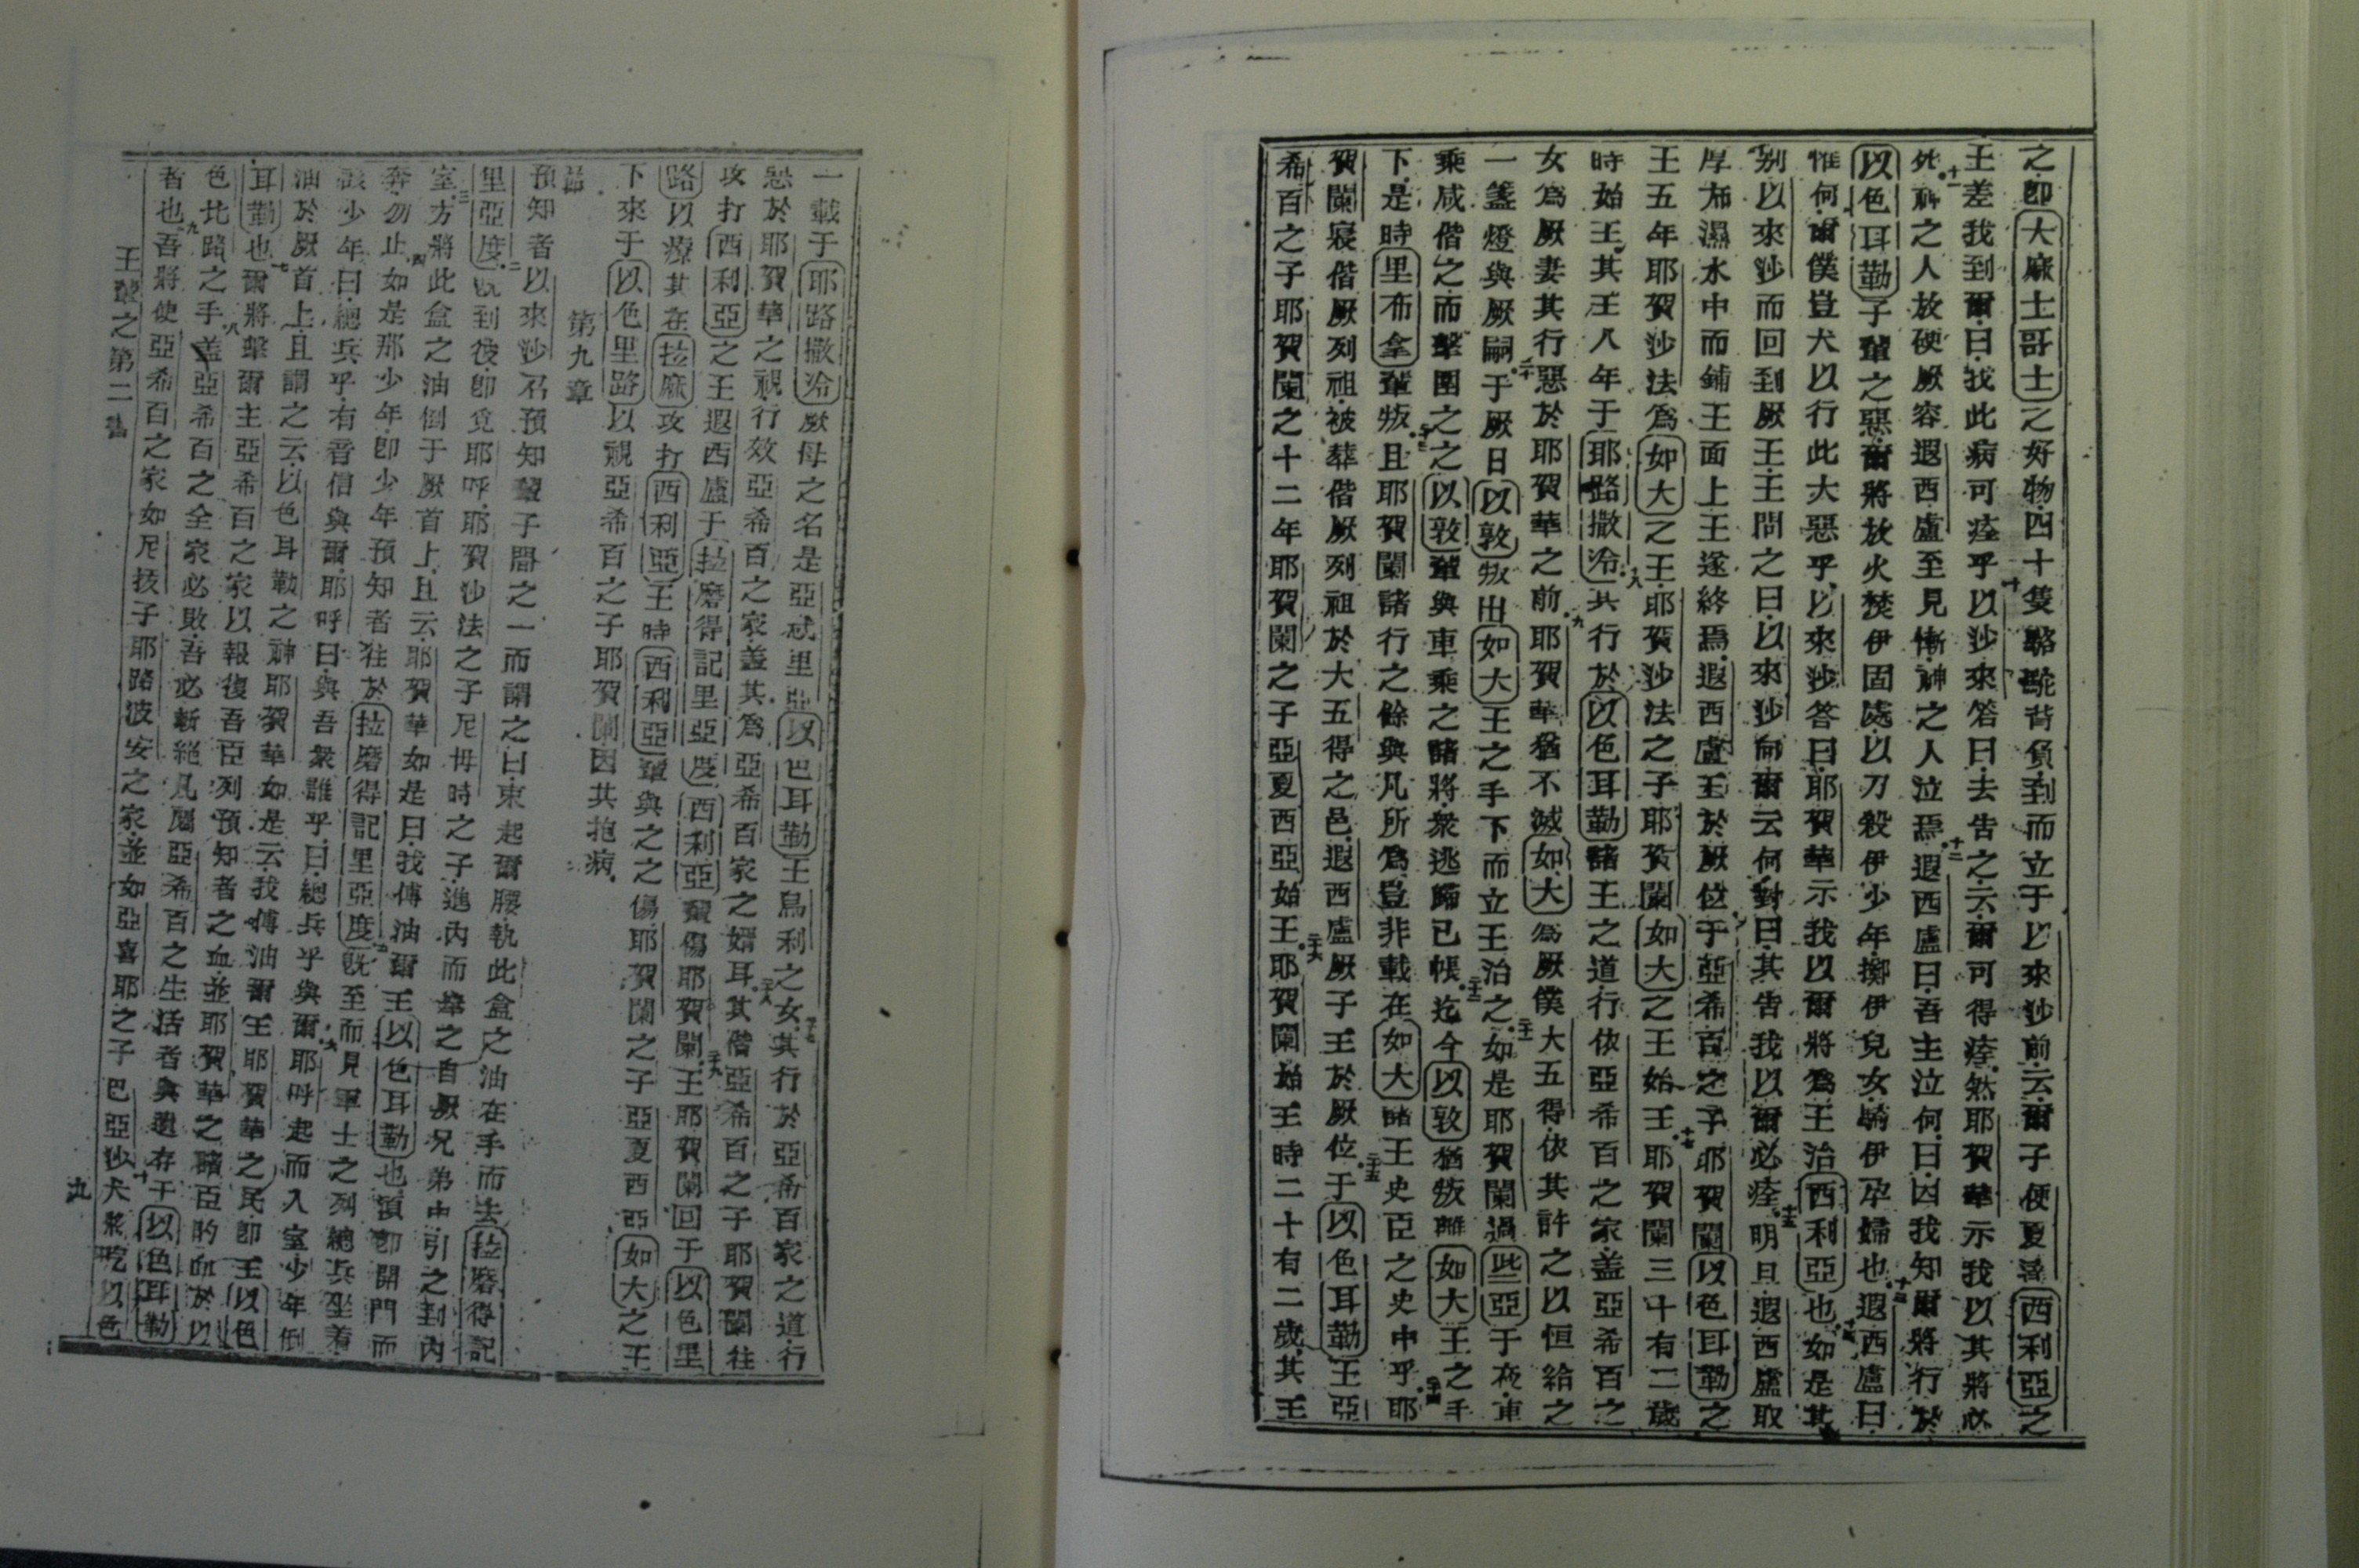 之即大廊士哥士之好物四十隻駱駝背負到而立于以來沙前云爾子便夏達西利亞之
王差我到爾曰我此病可痊乎十以沙來答曰去告之云爾可得痊然耶賀華示我以其將必
死十一神之人放硬厥容遐西盧至見慚神之人泣焉十二遐西盧曰吾主泣何曰因我知爾將行於
以色耳勒子輩之惡爾將放火焚伊固處以刀殺伊少年擲伊兒女騎伊孕婦也十三遐西盧曰
惟何爾僕豈犬以行此大惡乎以來沙答曰耶賀華示我以爾將為王治西利亞也十四如是其
別以來沙而回到厥王王問之曰以來沙向爾云何對曰其告我以爾必痊十五明旦遐西盧取
厚布濕水中而鋪王面上王遂終焉遐西盧王於厥位于亞希百之子耶賀闌以色耳勒之
王五年耶賀沙法為如大之王耶賀沙法之子耶賀闌如大之王始王十七耶賀闌三十有二歲
時始王其王八年于耶路撒冷十八其行於以色耳勒諸王之道行依亞希百之家盖亞希百之
女為厥妻其行惡於耶賀華之前十九耶賀華猶不滅如大為厥僕大五得依其許之以恒給之
一盞燈與厥嗣二十于厥日以敦叛出如大王之手下而立王治之二十一如是耶賀闌過些亞于夜車
乘咸偕之而擊圍之之以敦輩與車乘之諸將衆逃歸已帳二十二迄今以敦猶叛離如大王之手
下是時里布拿輩叛二十三且耶賀闌諸行之餘與凡所為豈非載在如大諸王史臣之史中乎二十四耶
賀闌寢偕厥列祖被葬偕厥列祖於大五得之邑遐西盧厥子王於厥位二十五于以色耳勒王亞
希百之子耶賀闌之十二年耶賀闌之子亞夏西亞始王二十六耶賀闌始王時二十有二歲其王
一載于耶路撒冷厥母之名是亞忒里亞以色耳勒王烏利之女二十七其行於亞希百家之道行
惡於耶賀華之視行效亞希百之家盖其為亞希百家之婿耳二十八其偕亞希百之子耶賀闌往
攻打西利亞之王遐西盧于拉磨得記里亞度西利亞輩傷耶賀闌二十九王耶賀闌回于以色里
路以療其在拉麻攻打西利亞王時西利亞輩與之之傷耶賀闌之子亞夏西亞如大之王
下來于以色里路以視亞希百之子耶賀闌因其抱病
第九章
預知者以來沙召預知輩子間之一而謂之曰束起爾腰執此盒之油在手而去拉磨得記
里亞度二既到彼即覓耶呼耶賀沙法之子尼毋時之子進內而舉之自厥兄弟中引之到內
室三方將此盒之油倒于厥首上且云耶賀華如是曰我傅油爾王以色耳勒也須即開門而
奔勿止四如是那少年即少年預知者往於拉磨得記里亞度五既至而見軍士之列總兵坐着
該少年曰總兵乎有音信與爾耶呼曰與吾衆誰乎曰總兵乎與爾六耶呼起而入室少年倒
油於厥首上且謂之云以色耳勒之神耶賀華如是云我傅油爾王耶賀華之民即王以色
耳勒也七爾將擊爾主亞希百之家以報復吾臣列預知者之血並耶賀華之諸臣的血於以
色比路之手八盖亞希百之全家必敗吾必斬絕凡屬亞希百之生活者與遺存于以色耳勒
者也九吾將使亞希百之家如尼拔子耶路波安之家並如亞喜耶之子巴亞沙十犬將吃以色
王輩之第二書
九